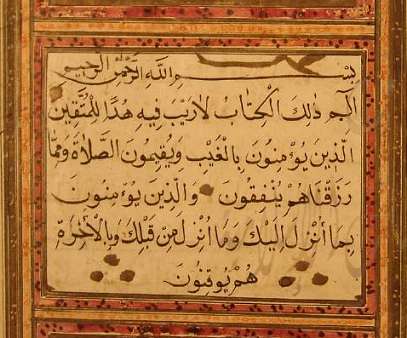 بِسْمِ اللَّهِ الرَّحْمٰنِ الرَّحِيمِ
الٓمٓ ذٰلِكَ الْكِتَابُ لَارَيْبَ فِيهِ هُدًا لِلْمُتَّقِينَ
الَّذِينَ يُؤْمِنُونَ بِالْغَيْبِ وَيُقِيمُونَ الصَّلَاةَ وَمِمَّا
رَزَقْنَاهُمْ يُنْفِقُونَ وَالَّذِينَ يُؤْمِنُونَ
بِمَا اُنْزِلَ اِلَيْكَ وَمَا اُنْزِلَ مِنْ قَبْلِكَ وَبِالْاٰخِرَةِ
هُمْ يُوقِنُونَ